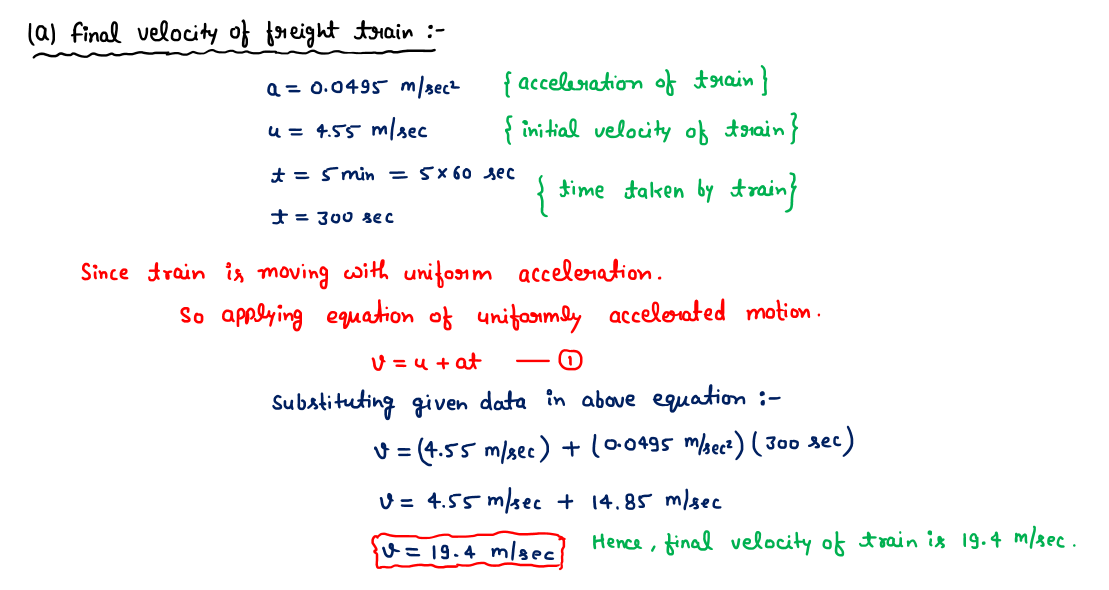 (a) final velocity of freight train :-
a = 0.0495 m/sec² { acceleration of train }
u = 4.55 m/sec { initial velocity of train }
t = 5 min = 5 × 60 sec
{ time taken by train }
t = 300 sec
Since train is moving with uniform acceleration.
So applying equation of uniformly accelerated motion.
v = u + at — ①
Substituting given data in above equation :-
v = (4.55 m/sec) + (0.0495 m/sec²) (300 sec)
v = 4.55 m/sec + 14.85 m/sec
v = 19.4 m/sec Hence, final velocity of train is 19.4 m/sec.